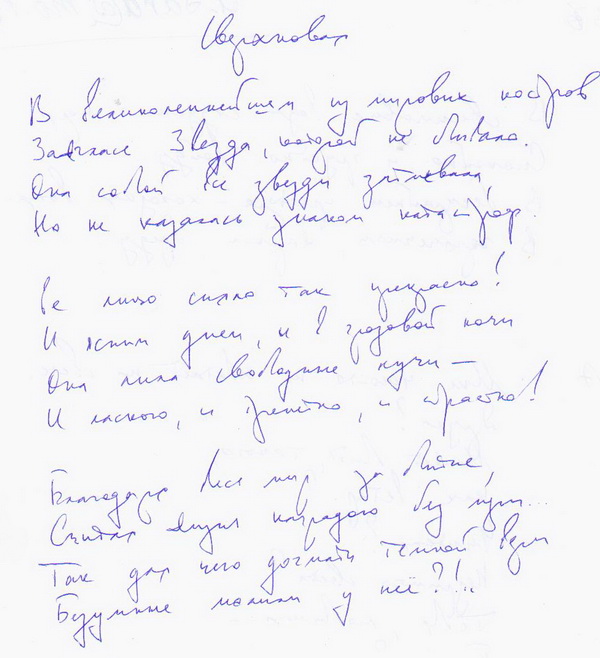 Сверхновая
В великолепнейшем из мировых костров
Зажглась Звезда, которой не бывало.
Она собой все звезды затмевала,
Но не казалась знаком катастроф.
Ее лицо сияло так прекрасно!
И ясным днем, и в грозовой ночи
Она лила свободные лучи —
И ласково, и трепетно, и страстно!
Благодаря весь мир за бытие,
Считая жизнь наградою без цены...
Так для чего догматы темной
Безумные искали у неё?!..